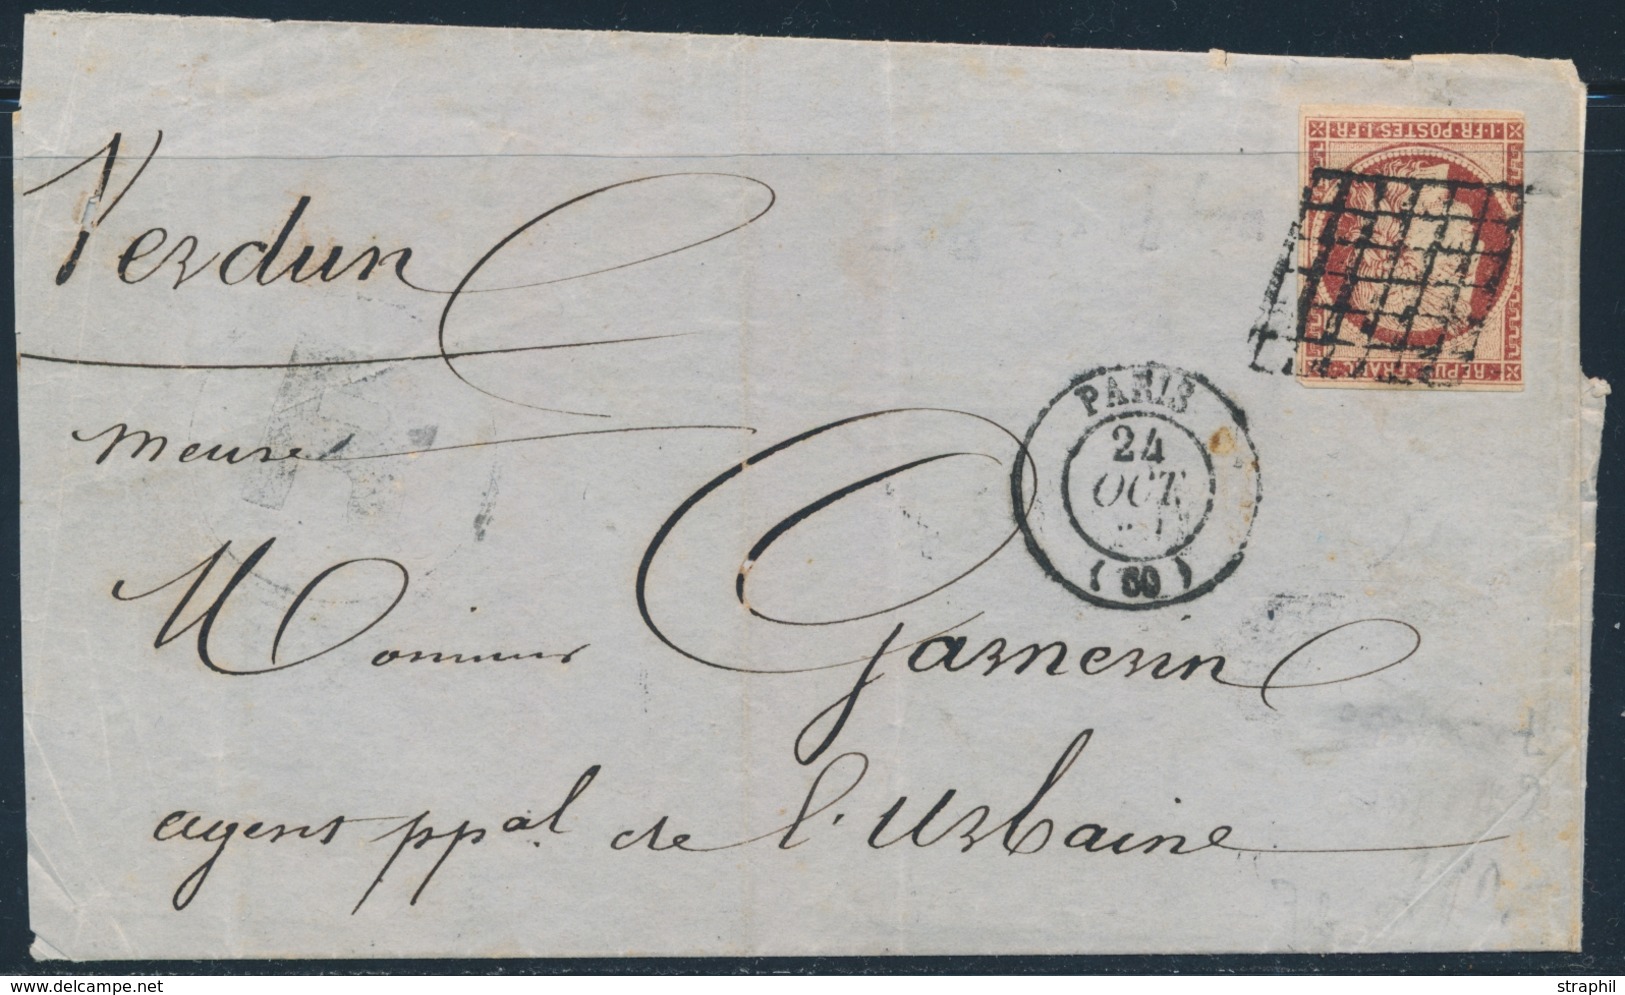 Verdun
Meuse
Monsieur Garnerin
agent ppal de l'Urbaine
PARIS
24
OCT
(60)
1·FR·POSTES·1·FR
REPUB·FRANC
www.delcampe.net
straphil